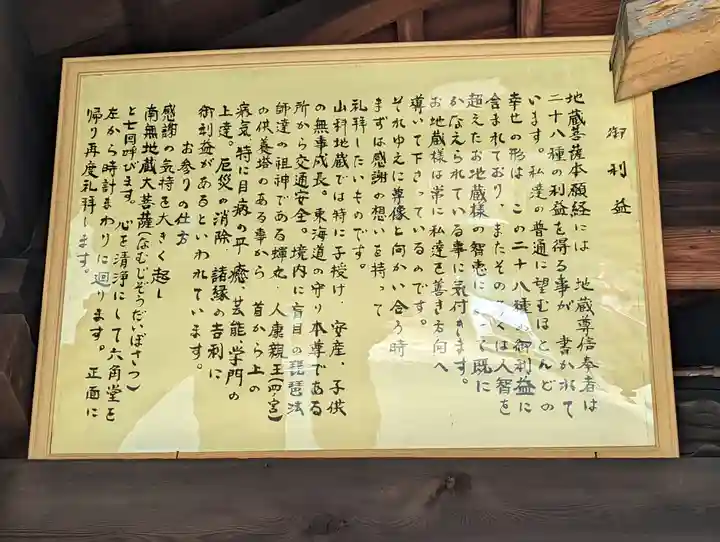 御利益
地蔵菩薩本願経には 地蔵尊信奉者は
二十八種の利益を得る事が 書かれて
います。私達の普通に望むほとんどの
幸せの形は、この二十八種の御利益に
含まれており、またその多くは人智を
超えたお地蔵様の智恵によって既に
かなえられている事に気付きます。
お地蔵様は常に私達を善き方向へ
導いて下さっているのです。
それゆえに尊像と向かい合う時
まずは感謝の想いを持って
礼拝したいものです。
山科地蔵では特に子授け、安産、子供
の無事成長。東海道の守り本尊である
所から交通安全。境内に盲目の琵琶法
師達の祖神である蟬丸、人康親王(四ノ宮)
の供養塔のある事から 首から上の
病気、特に目病の平癒、芸能、学門の
上達。厄災の消除、諸縁の吉利に
御利益があるといわれています。
お参りの仕方
感謝の気持を大きく起し
南無地蔵大菩薩(なむじぞうだいぼさつ)
と七回呼びます。心を清浄にして六角堂を
左から時計まわりに廻ります。正面に
帰り再度礼拝します。